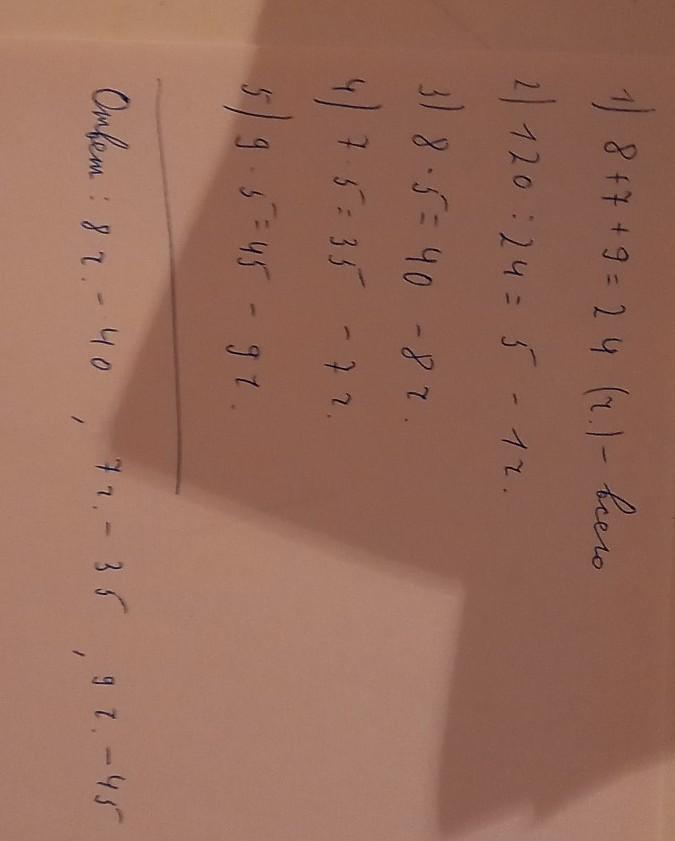 1) 8 + 7 + 9 = 24 (ч.) - всего
2) 120 : 24 = 5 - 1ч.
3) 8 · 5 = 40 - 8ч.
4) 7 · 5 = 35 - 7ч.
5) 9 · 5 = 45 - 9ч.
Ответ: 8ч. - 40, 7ч. - 35, 9ч. - 45